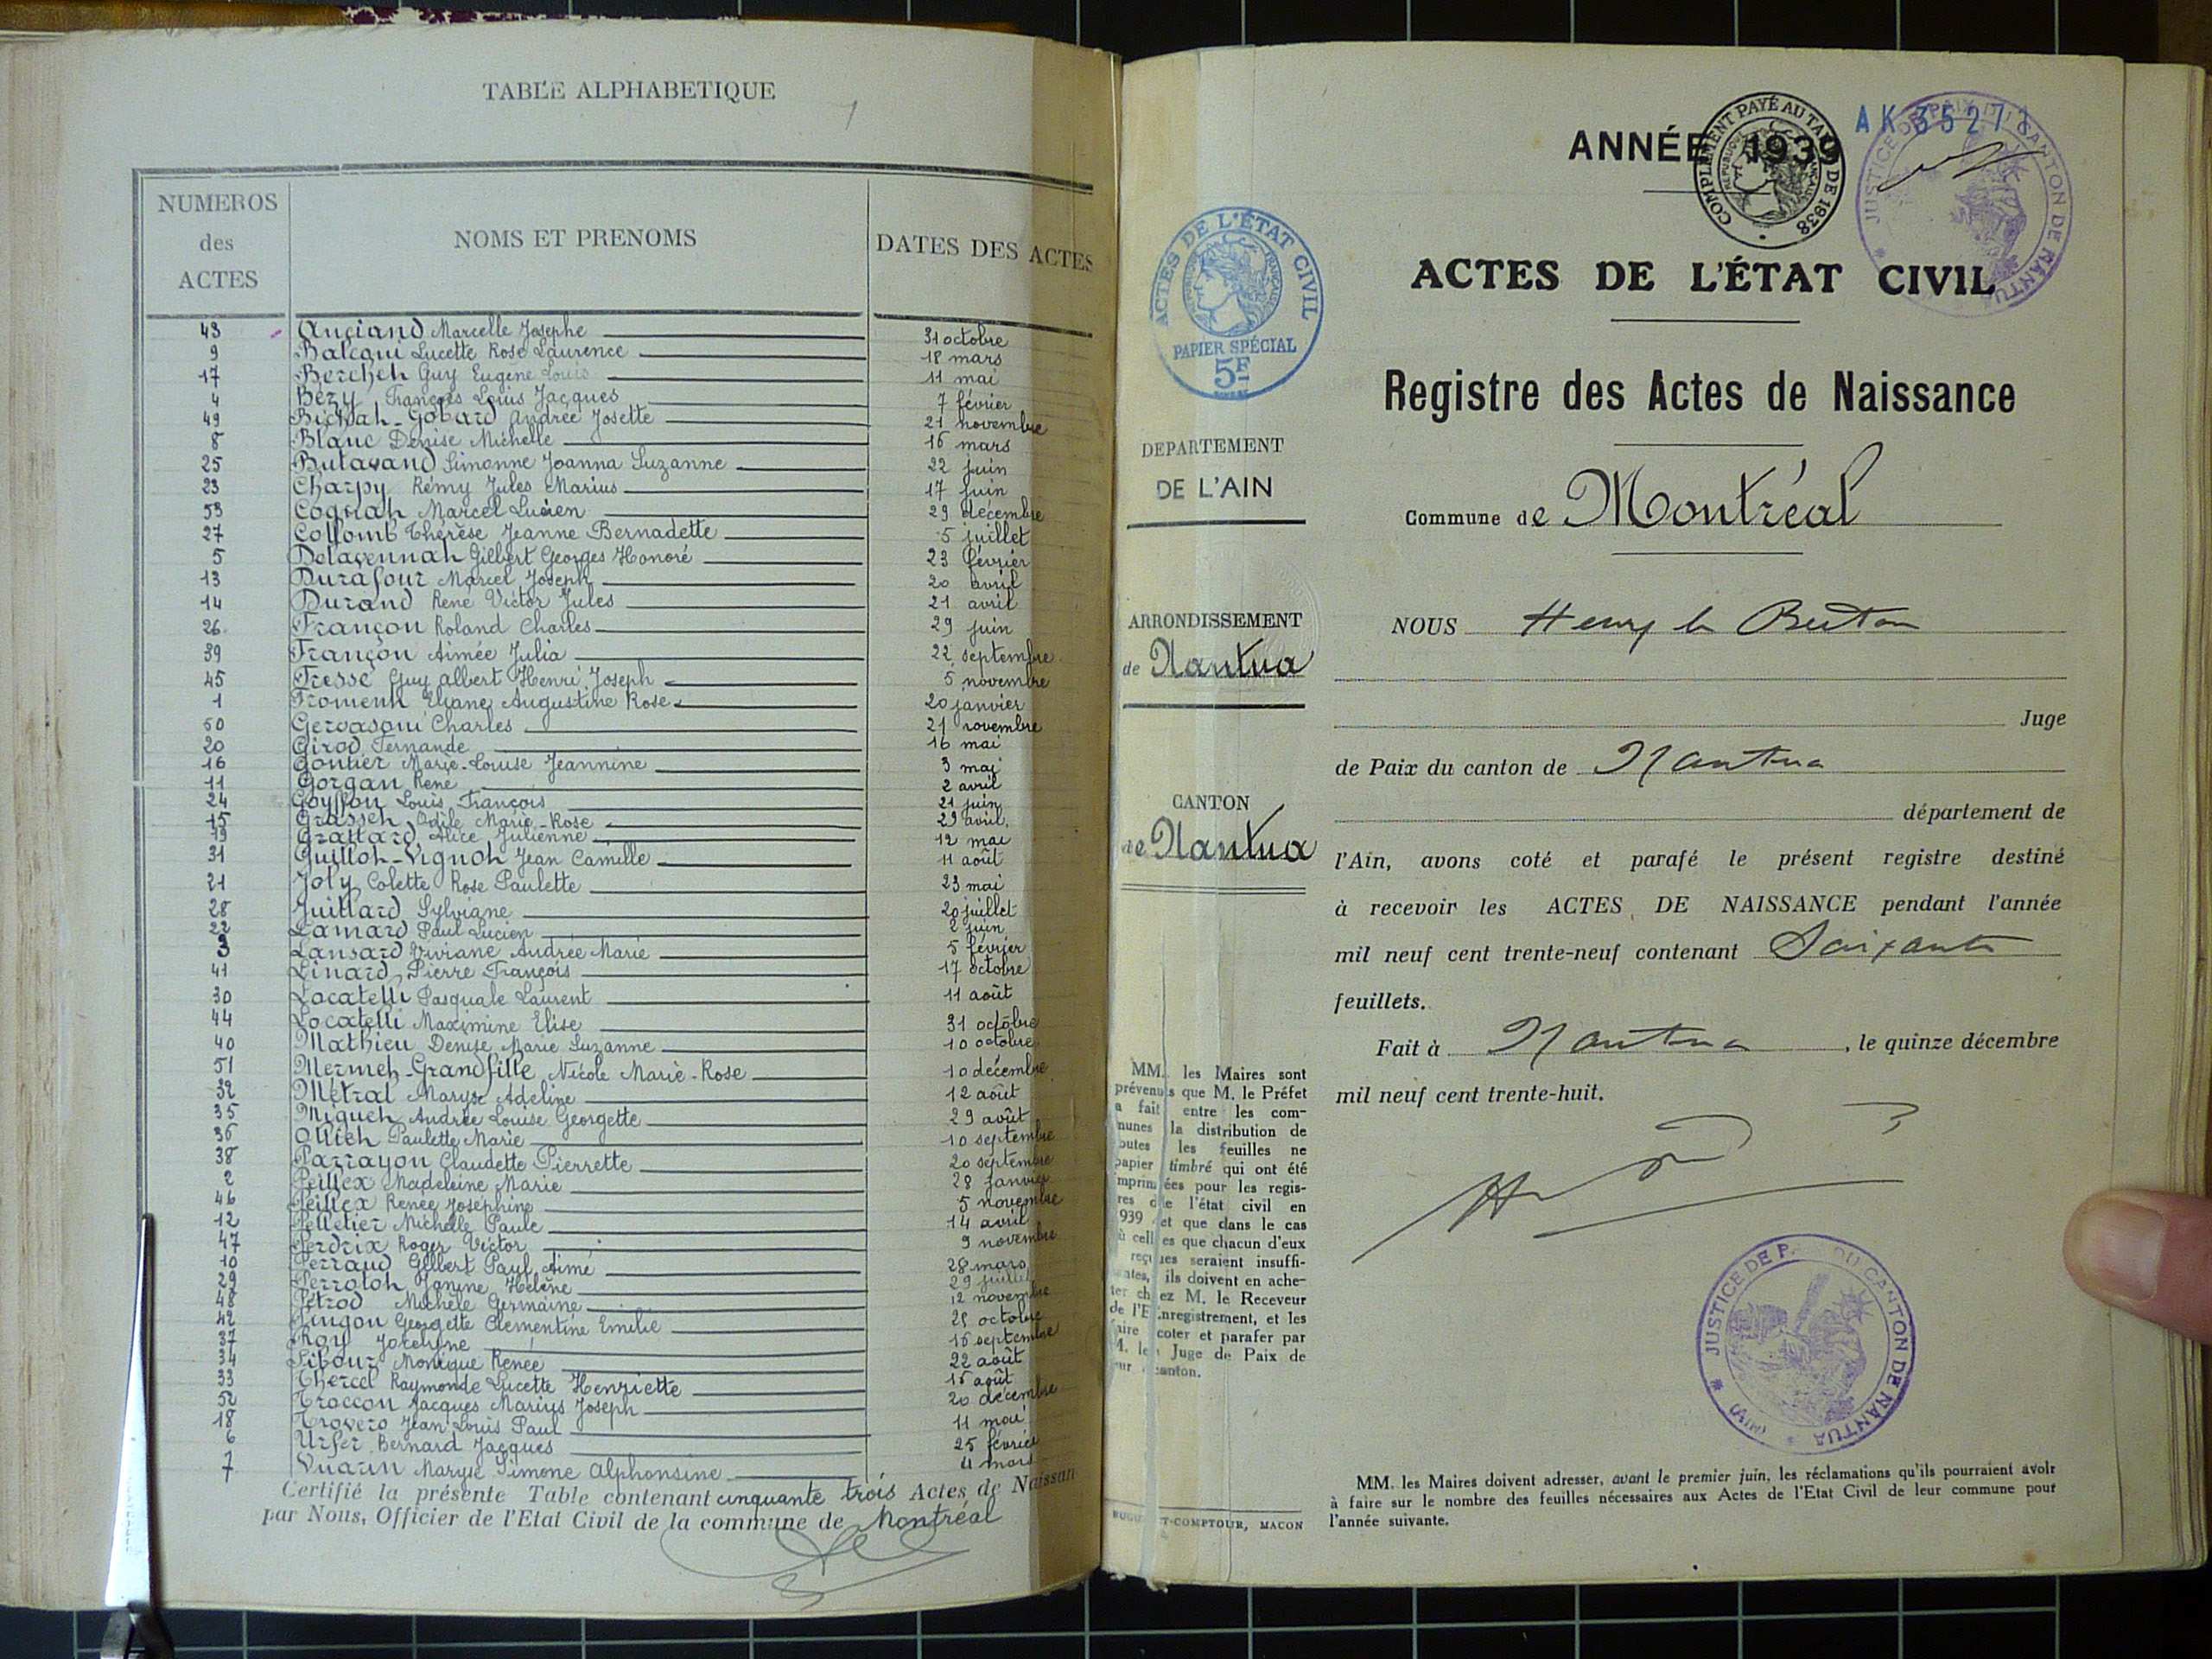 TABLE ALPHABETIQUE
NUMEROS des ACTES
NOMS ET PRENOMS
DATES DES ACTES
43 Anciand Marcelle Josephe 31 octobre
9 Lucette Rose Laurence 18 mars
17 Berchet Guy Eugène Louis 11 mai
4 Bézy François Louis Jacques 7 février
49 Bichat-Gobard Andrée Josette 21 novembre
8 Blanc Denise Michelle 16 mars
25 Butavand Simonne Joanna Suzanne 22 juin
23 Charpy Rémy Jules Marius 17 juin
53 Cognat Marcel Lucien 29 décembre
27 Collomb Thérèse Jeanne Bernadette 5 juillet
5 Delavennat Gilbert Georges Honoré 23 février
13 Durafour Marcel Joseph 20 avril
14 Durand René Victor Jules 21 avril
26 Françon Roland Charles 29 juin
39 Françon Aimée Julia 22 septembre
45 Fresse Guy Albert Henri Joseph 5 novembre
1 Froment Eliane Augustine Rose 20 janvier
50 Gervasoni Charles 21 novembre
20 Girod Fernande 16 mai
16 Gontier Marie-Louise Jeannine 3 mai
11 Gorgan René 2 avril
24 Goyffon Louis François 21 juin
15 Grasset Odile Marie-Rose 29 avril
19 Grattard Alice Julienne 12 mai
31 Guillot-Vignot Jean Camille 11 août
21 Joly Colette Rose Paulette 23 mai
28 Juillard Sylviane 20 juillet
22 Lamard Paul Lucien 2 juin
3 Lansard Viviane Andrée Marie 5 février
41 Linard Pierre François 17 octobre
30 Locatelli Pasquale Laurent 11 août
44 Locatelli Maximine Elise 31 octobre
40 Mathieu Denise Marie Suzanne 10 octobre
51 Mermet-Grandfille Nicole Marie-Rose 10 décembre
32 Métral Maryse Adeline 12 août
35 Miguet Andrée Louise Georgette 29 août
36 Ollieh Paulette Marie 10 septembre
38 Parrayon Claudette Pierrette 20 septembre
2 Peillex Madeleine Marie 28 janvier
46 Peillex Renée Joséphine 5 novembre
12 Pelletier Michelle Paule 14 avril
47 Perdrix Roger Victor 9 novembre
10 Perraud Gilbert Paul Aimé 28 mars
29 Perrotot Janine Hélène 29 juillet
48 Pétrod Michèle Germaine 12 novembre
42 Pingon Georgette Clementine Emilie 25 octobre
37 Roy Jocelyne 16 septembre
34 Sibour Monique Renée 22 août
33 Thercel Raymonde Lucette Henriette 15 août
52 Troccon Jacques Marius Joseph 20 décembre
18 Trovero Jean Louis Paul 11 mai
6 Urfer Bernard Jacques 25 février
7 Vuarin Maryse Simone Alphonsine 4 mars
Certifié la présente Table contenant cinquante trois Actes de Naissan
par Nous, Officier de l'Etat Civil de la commune de Montréal
AK 35271
ANNÉE 1939
COMPLÉMENT PAYÉ AU TARIF DE 1938
JUSTICE DE PAIX DU CANTON DE NANTUA
ACTES DE L'ÉTAT CIVIL
RÉPUBLIQUE FRANÇAISE
PAPIER SPÉCIAL
5F
ACTES DE L'ÉTAT CIVIL
Registre des Actes de Naissance
DEPARTEMENT
DE L'AIN
Commune de Montréal
ARRONDISSEMENT
de Nantua
CANTON
de Nantua
NOUS Henry le Breton
Juge
de Paix du canton de Nantua
département de
l'Ain, avons coté et parafé le présent registre destiné
à recevoir les ACTES DE NAISSANCE pendant l'année
mil neuf cent trente-neuf contenant Soixante
feuillets.
Fait à Nantua, le quinze décembre
mil neuf cent trente-huit.
MM. les Maires sont
prévenus que M. le Préfet
a fait entre les com-
munes la distribution de
outes les feuilles ne
papier timbré qui ont été
imprimées pour les regis-
res de l'état civil en
939 et que dans le cas
ù celles que chacun d'eux
reçues seraient insuffi-
antes, ils doivent en ache-
ter chez M. le Receveur
de l'Enregistrement, et les
faire coter et parafer par
M. le Juge de Paix de
eur canton.
T-COMPTOUR, MACON
JUSTICE DE P. DU CANTON DE NANTUA (AIN)
MM. les Maires doivent adresser, avant le premier juin, les réclamations qu'ils pourraient avoir
à faire sur le nombre des feuilles nécessaires aux Actes de l'Etat Civil de leur commune pour
l'année suivante.